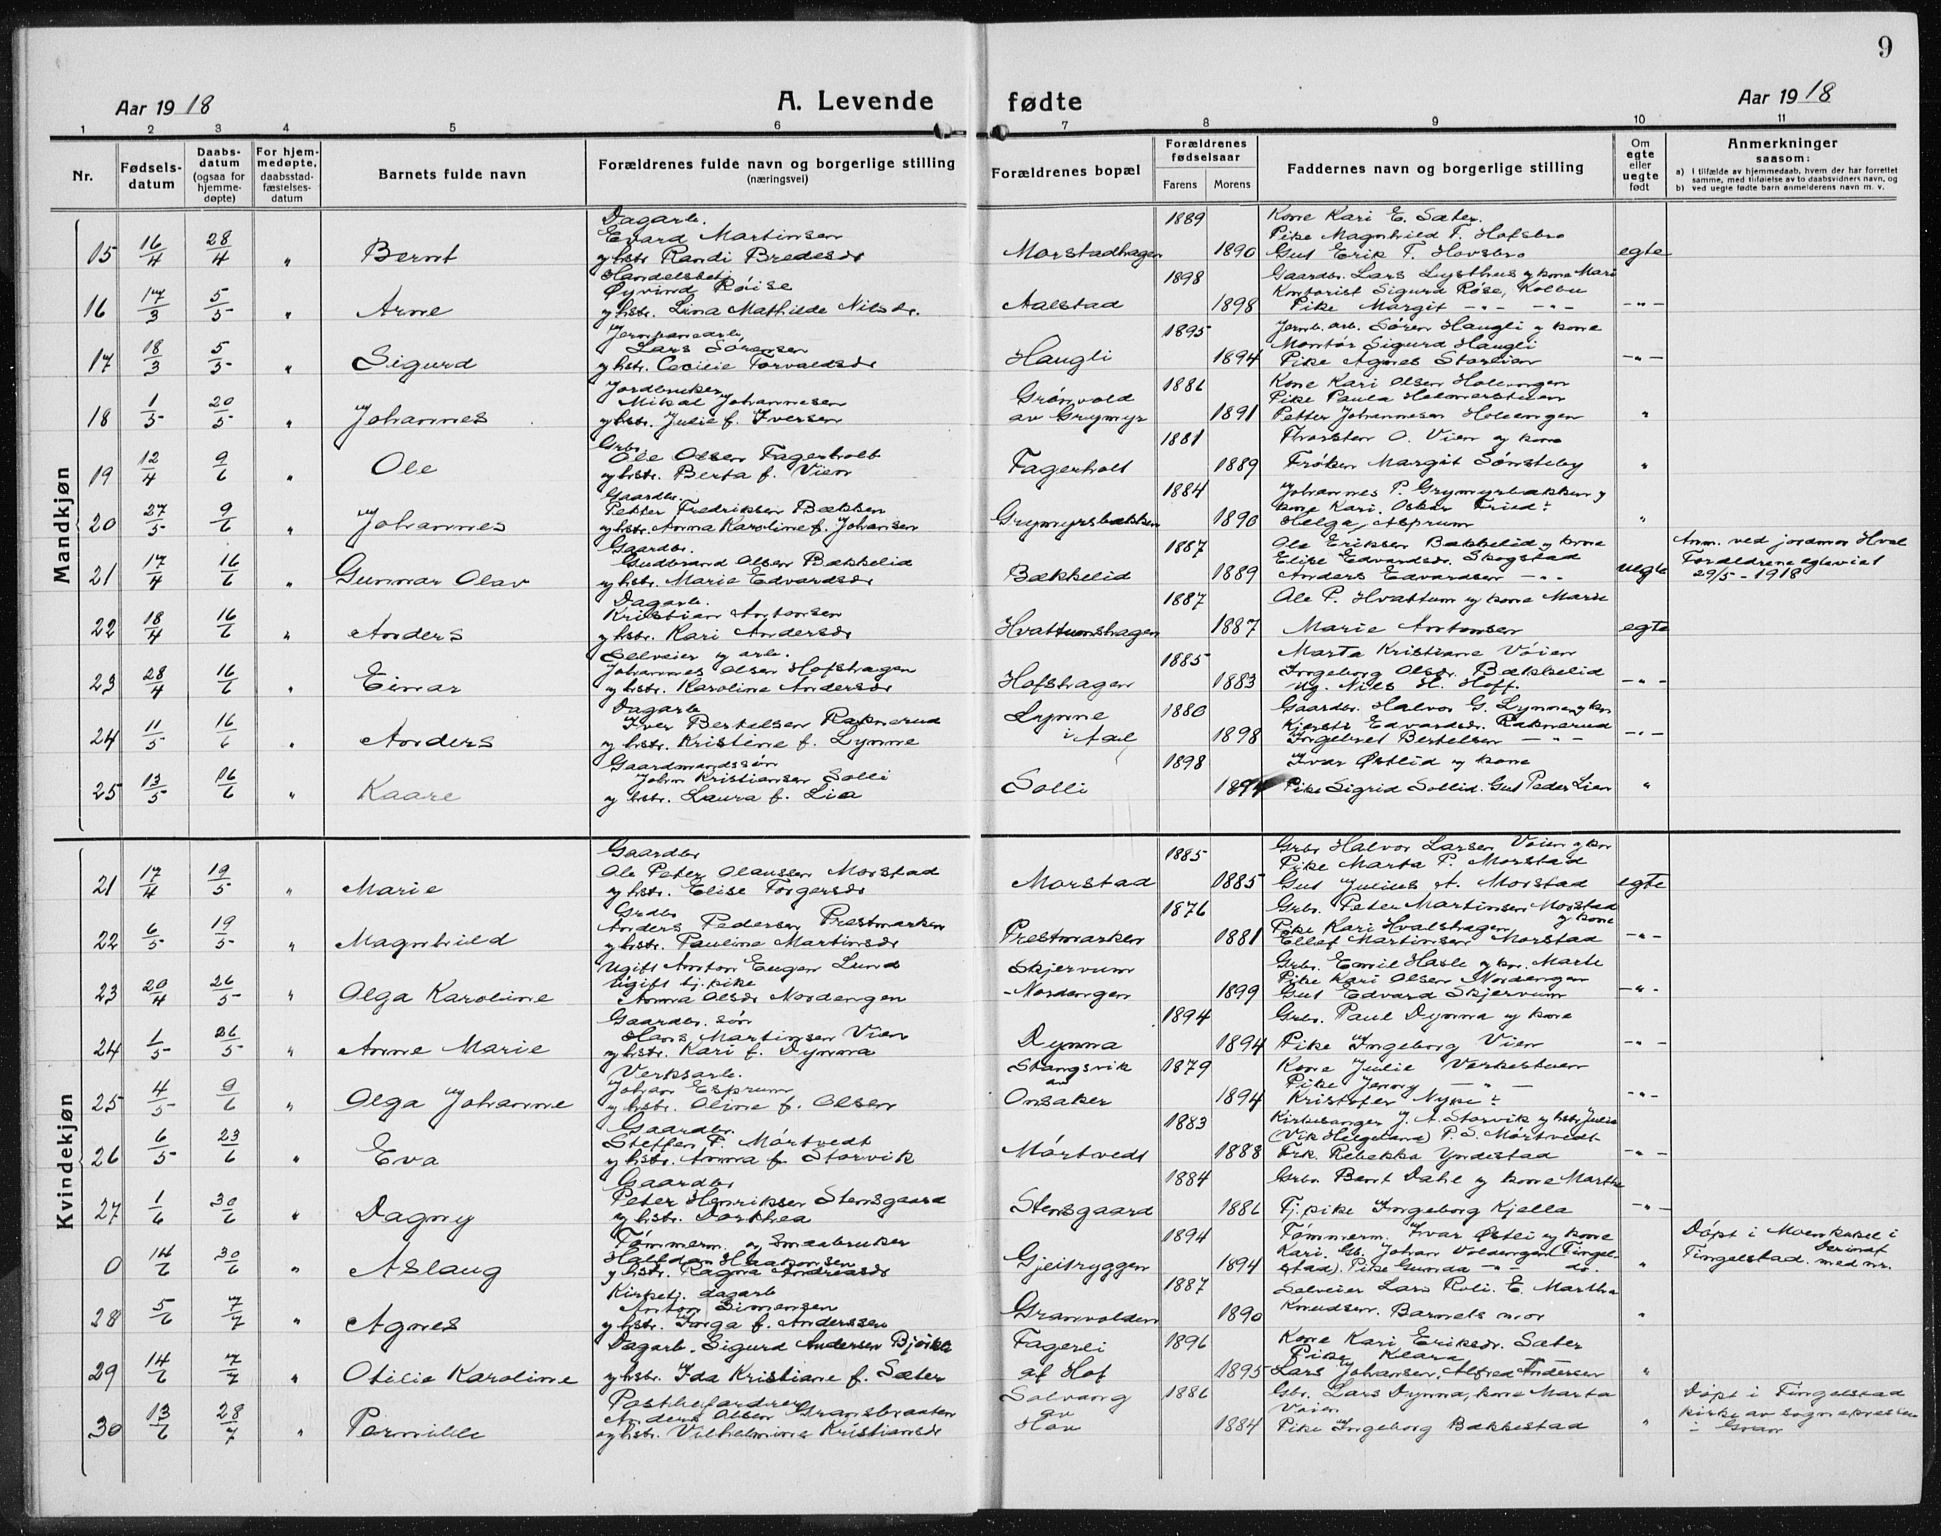 9
Aar 1918 A. Levende fødte Aar 1918
1 2 3 4 5 6 7 8 9 10 11
Nr. Fødsels-datum Daabs-datum (ogsaa for hjemme-døpte) For hjem-medøpte, daabsstad-fæstelses-datum Barnets fulde navn Forældrenes fulde navn og borgerlige stilling (næringsvei) Forældrenes bopæl Forældrenes fødselsaar Farens Morens Faddernes navn og borgerlige stilling Om egte eller uegte født Anmerkninger saasom:
a) i tilfælde av hjemmedaab, hvem der har forrettet samme, med tilføielse av to daabsvidners navn, og
b) ved uegte fødte barn anmelderens navn m. v.
Mandkjøn
Dagarb. 1889 Kone Kari E. Sæter.
Evard Martinsen Pike Magnhild T. Hofsbro
15 16/4 28/4 " Bernt og hstr. Randi Bredesdr Morstadhagen 1890 Gut Erik T. Hovsbro egte
Handelsbetj. 1898 Gaardbr. Lars Lysthus og kone Mari
Øyvind Røise Kontorist Sigurd Røse, Kolbu
16 17/3 5/5 " Arne og hstr. Lina Mathilde Nilsdr. Aalstad 1898 Pike Margit -"- -"- -"-
Jernbanearb. 1895 Jernb. arb. Søren Haugli og kone
Lars Sørensen Montør Sigurd Haugli
17 18/3 5/5 " Sigurd og hstr. Cecilie Torvaldsdr Haugli 1894 Pike Agnes Storlien -"-
Jordbruker 1886 Kone Kari Olsen Holengen
Mikal Johannesen Grønvold Pike Paula Holmerstuen
18 1/5 20/5 " Johannes og hstr. Julie f. Iversen av Grymyr 1891 Petter Johannesen Holengen "
Grbr. 1881 Thorsten O. Vien og kone
Ole Olsen Fagerholt
19 12/4 9/6 " Ole og hstr. Berta f. Vien Fagerholt 1889 Frøken Margit Sønsteby "
Gaardbr. 1884 Johannes P. Grymyrbakken og
Petter Fredriksen Bakken kone Kari. Oskar Fried-
20 27/5 9/6 " Johannes og hstr. Anna Karoline f. Johansen Grymyrsbakken 1890 Helga Asprum "
Gaardbr. 1887 Ole Eriksen Bækkelid og kone Anm. ved jordmor Hval
Gudbrand Olsen Bækkelid Elise Edvardsdr. Skogstad Forældrene egteviet
21 17/4 16/6 " Gunnar Olav og hstr. Marie Edvardsdr Bækkelid 1889 Anders Edvardsen -"- uegte 29/5-1918
Dagarb. 1887 Ole P. Hvattum og kone Marie
Kristian Antonsen
22 18/4 16/6 " Anders og hstr. Kari Andersdr Hvattumshagen 1887 Marie Antonsen egte
Selveier og arb. 1885 Marta Kristiane Vøien
Johannes Olsen Hofshagen Ingeborg Olsdr. Bækkelid
23 28/4 16/6 " Einar og hstr. Karoline Andersdr Hofshagen 1883 Ug. Nils H. Hoff. -"-
Dagarb 1880 Gaardbr. Halvor G. Lynne og kone
Iver Bertelsen Raknerud Lynne Kjersti Edvardsdr. Raknerud
24 11/5 16/6 " Anders og hstr. Kristine f. Lynne i Aal 1898 Ingebret Bertelsen -"- -"-
Gaardmandssøn 1898 Ivar Østlid og kone
John Kristiansen Solli
25 13/5 16/6 " Kaare og hstr. Laura f. Lia Solli Pike Sigrid Sollid. Gut Peder Lien "
Kvindekjøn
Gaardbr 1885 Grbr Halvor Larsen Vøien og kone
Ole Peter Olaussen Morstad Pike Marta P. Morstad
21 17/4 19/5 " Marie og hstr. Elise Torgersdr Morstad 1885 Gut Julius A. Morstad egte
Grdbr 1876 Grbr. Peter Martinsen Morstad og kone
Anders Pedersen Prestmarken Pike Kari Hvalshagen
22 6/5 19/5 " Magnhild og hstr. Pauline Martinsdr Prestmarken 1881 Ellef Martinsen Morstad -"-
Ugift Anton Eugen Lund Skjervum Grbr. Emil Hasle og kon. Marte
Ugift tj. pike Pike Kari Olsen Nordengen
23 20/4 26/5 " Olga Karoline Anna Olsdr Nordengen -Nordengen 1899 Gut Edvard Skjervum -"-
Gaardbr. søn 1894 Grbr. Paul Dynna og kone
Hans Martinsen Vien
24 1/5 26/5 " Anne Marie og hstr. Kari f. Dynna Dynna 1894 Pike Ingeborg Vien -"-
Verksarb. Stangsvik 1879 Kone Julie Verkestuen
Johan Esprum av Pike Jenny -"-
25 4/5 9/6 " Olga Johanne og hstr. Oline f. Olsen Onsaker 1894 Kristofer Nyke - -"-
Gaardbr. 1883 Kirkesanger J. A. Storvik og hstr Julia
Steffen P. Mørtvedt (Vik Helgeland) P. S. Mørtvedt
26 6/5 23/6 " Eva og hstr. Anna f. Storvik Mørtvedt 1888 Frk. Rebekka Yndestad -"-
Gaardbr 1884 Grbr Bernt Dahl og kone Marthe
Peter Henriksen Stensgaard
27 1/6 30/6 " Dagny og hstr. Dorthea Stensgaard 1886 Tj. pike Ingeborg Kjella -"-
Tømmerm. og Smaabruker 1894 Tømmerm. Ivar Østli og kone Døpt i Moenkapel i
Halfdan Haakonsen Kari. Gb. Johan Voldengen (Tingel- Tingelstad. Derinaf
0 14/6 30/6 " Aslaug og hstr. Ragna Andreasdr Gjeitryggen 1894 stad). Pike Gunda -"- do. " med nr.
Kirketj. dagarb 1887 Selveier Lars Roli. E. Martha
Anton Simensen
28 5/6 7/7 " Agnes og hstr. Inga f. Anderssen Granvolden 1890 Knudsen. Barnets mor "
Dagarb. Sigurd Andersen Bjørke Fagerli 1896 Kone Kari Eriksdr. Sæter
Pike Klara -"-
29 14/6 7/7 " Otilie Karoline og hstr. Ida Kristiane f. Sæter af Hof 1895 Lars Johansen, Alfred Andersen "
Postbefordrer Solvang 1886 Gbr. Lars Dynna, kone Marta Døpt i Tingelstad
Anders Olsen Gransbraaten av Vøien kirke av sognepresten
30 13/6 28/7 " Pernille og hstr. Vilhelmine Kristiansdr Hov 1884 Pike Ingeborg Bækkestad " i Gran